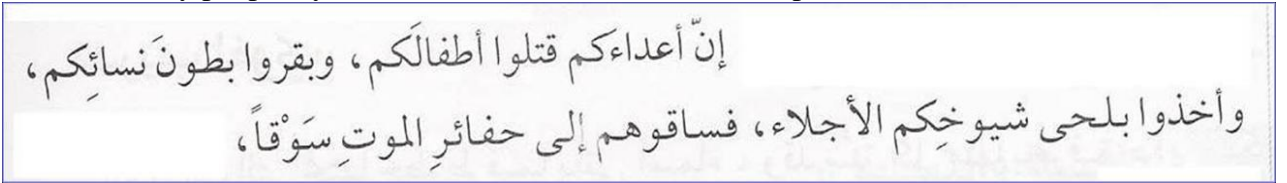 إنّ أعداءَكم قتلوا أطفالَكم، وبقروا بطونَ نسائِكم،
وأخذوا بلحى شيوخِكم الأجلاء، فساقوهم إلى حفائرِ الموتِ سَوْقاً،